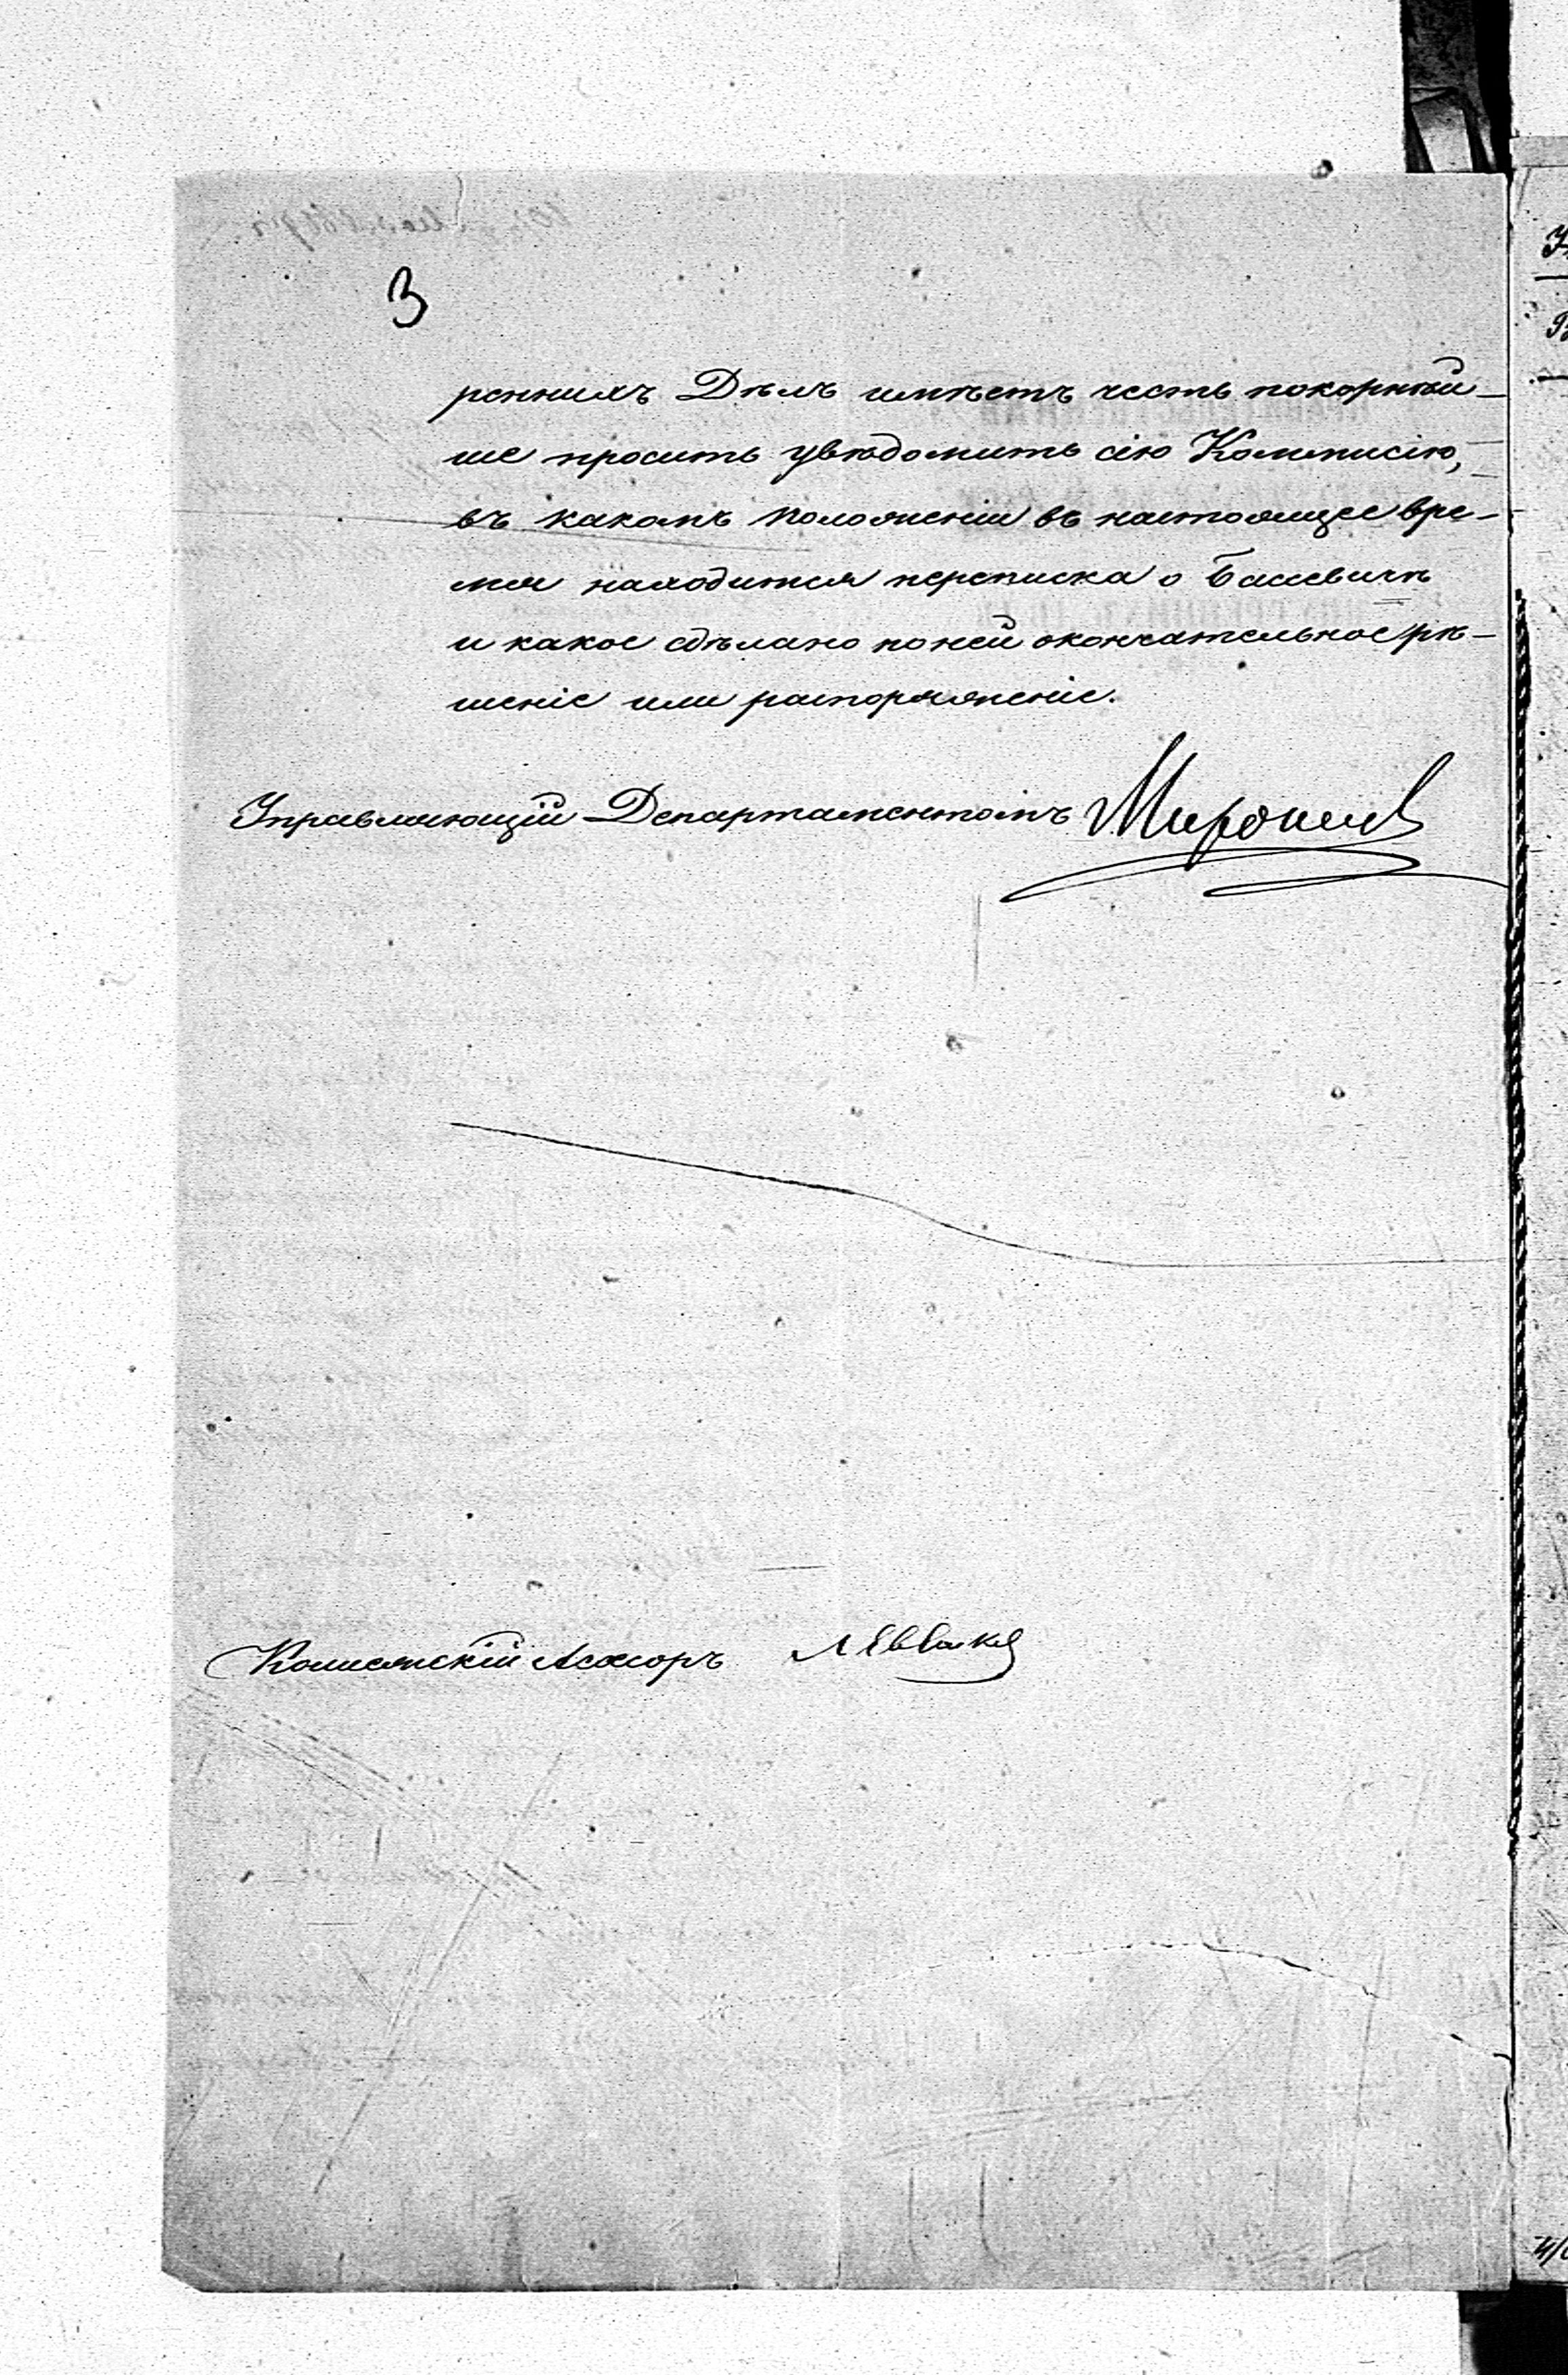 3
реннихъ Дѣлъ имѣетъ честь покорнѣй-
ше просить увѣдомить сію Коммисію,
въ какомъ положеніи въ настоящее вре-
мя находится переписка о Басевичѣ
и какое сдѣлано по ней окончательное рѣ-
шеніе или распоряженіе.
Управляющій Департаментомъ
Коллежскій Асессоръ